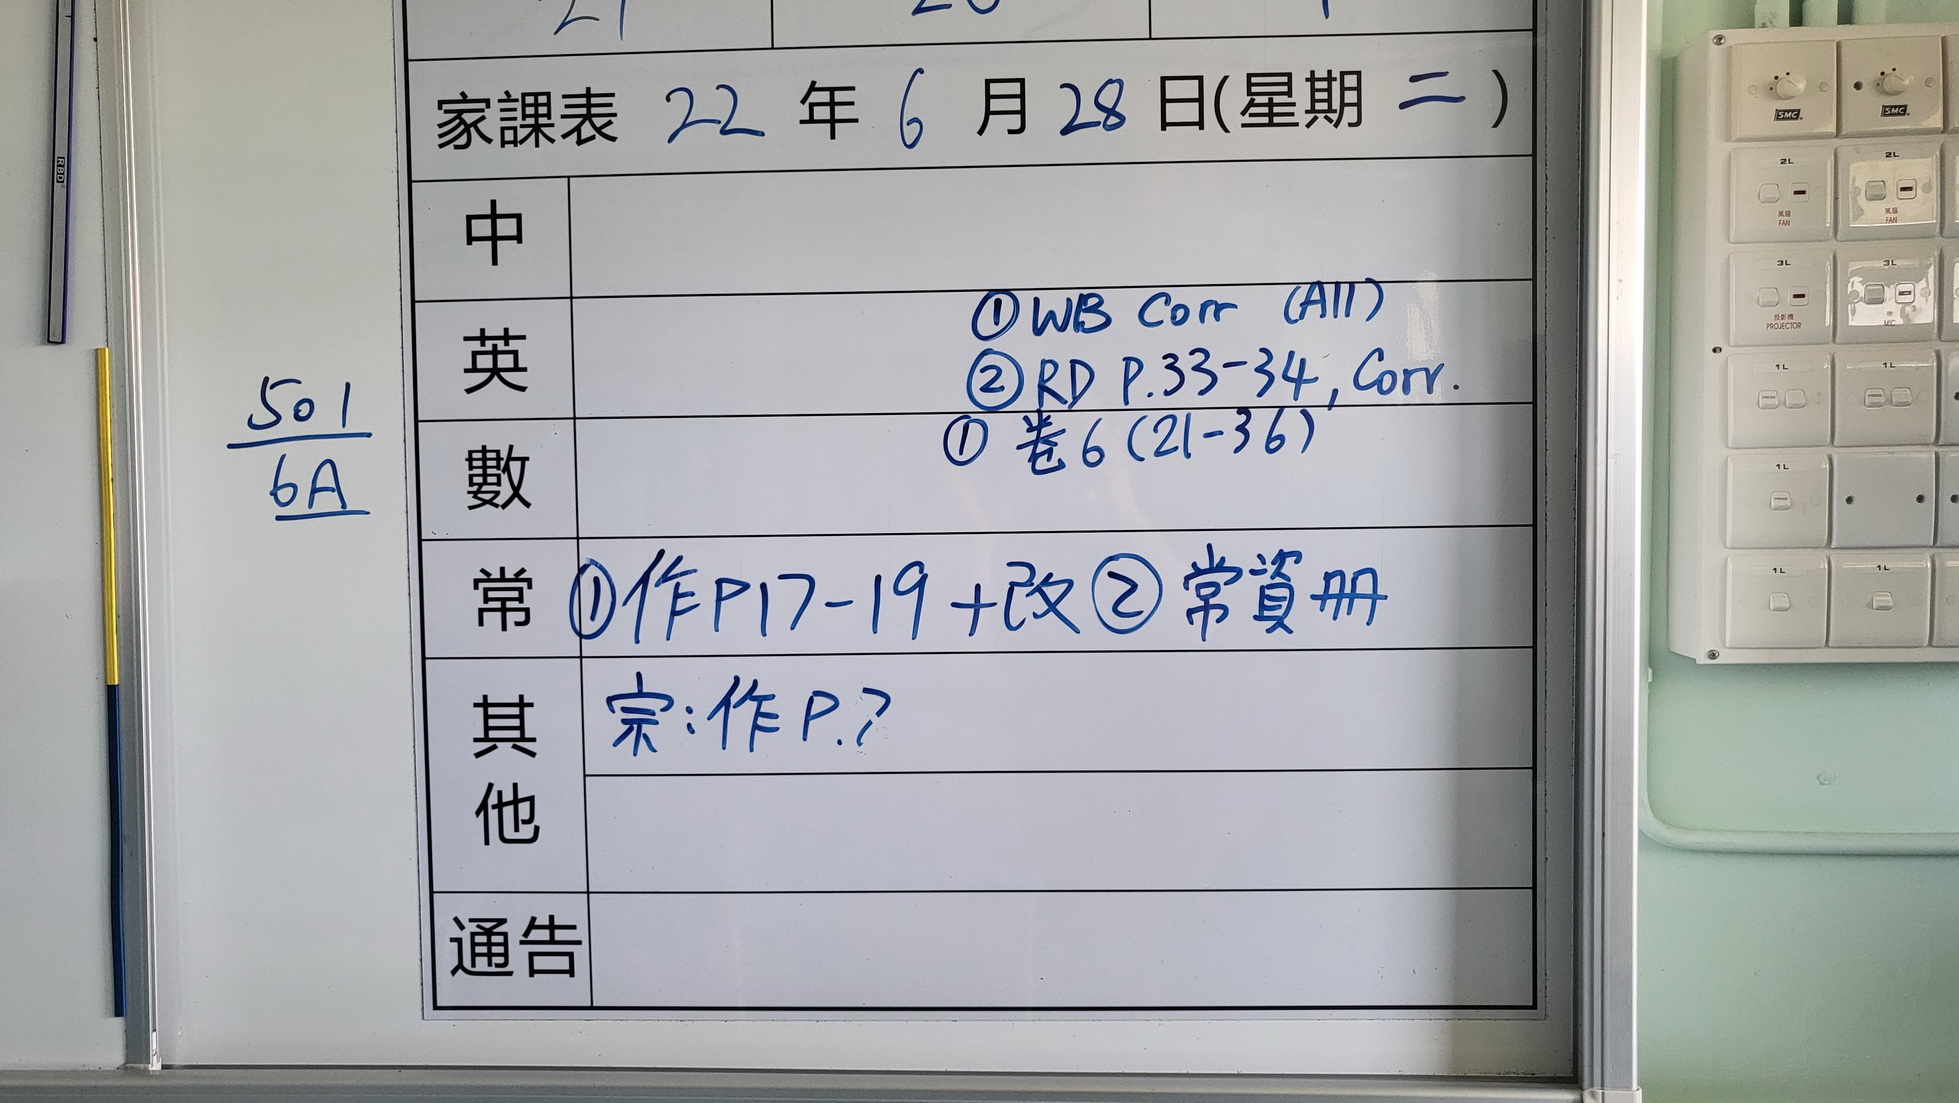 21
家課表 22 年 6 月 28 日(星期 二 )
中
英
① WB Corr (All)
② RD P.33-34, Corr.
數
① 卷6 (21-36)
常
① 作P17-19 +改 ② 常資冊
其他
宗:作 P.7
通告
501
6A
RBD
SMC
SMC
2L
風扇
FAN
2L
風扇
FAN
3L
投影機
PROJECTOR
3L
MIC
1L
1L
1L
1L
1L